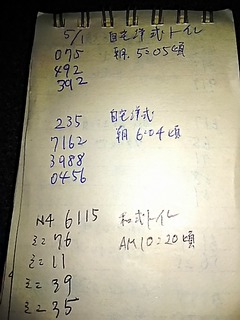 5/1 自宅洋式トイレ
075 朝. 5:05頃
492
392
235 自宅洋式
7162 朝 6:04頃
3988
0456
N4 6115 和式トイレ
ミニ 76 AM10:20頃
ミニ 11
ミニ 39
ミニ 35